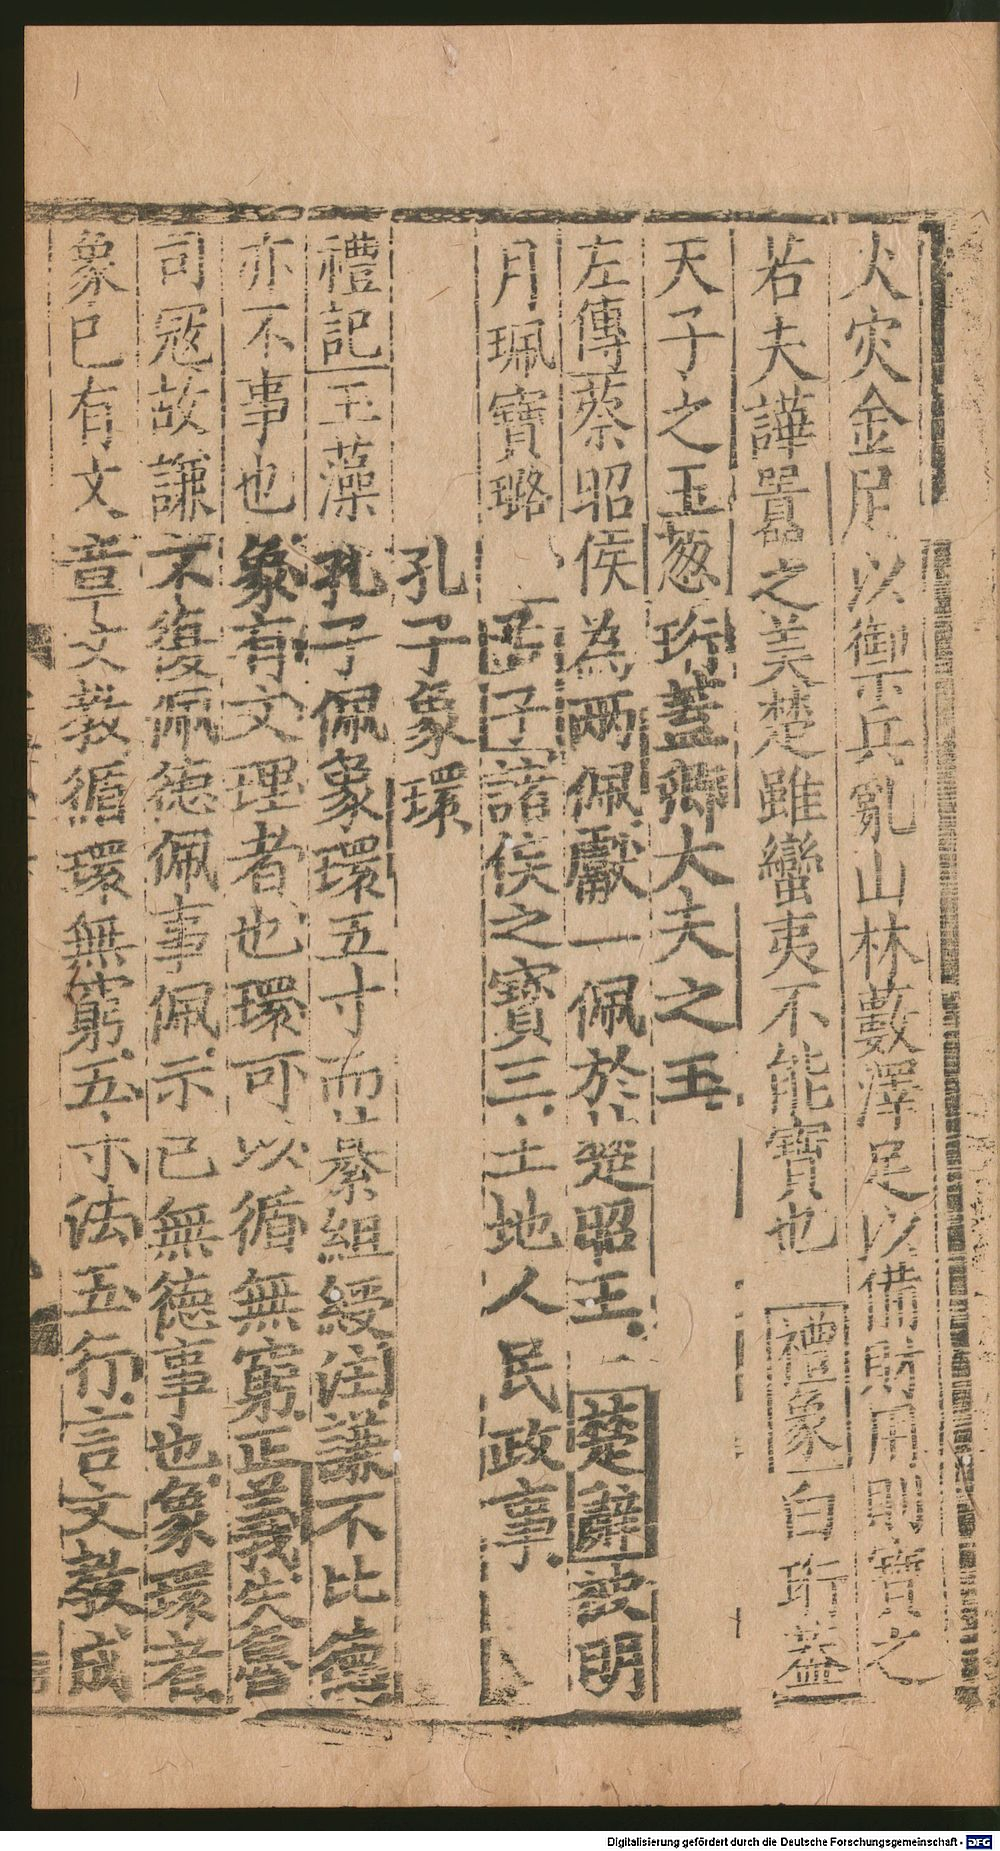 火灾金足以御兵亂山林藪澤足以備財用則寶之
若夫譁嚻之美楚雖蠻夷不能寶也 禮象 白珩蓋
天子之玉葱珩蓋卿大夫之玉
左傳蔡昭侯為兩佩獻一佩於楚昭王 楚辭被明
月珮寶璐 孟子諸侯之寶三土地人民政事
孔子象環
禮記玉藻孔子佩象環五寸而綦組綬注謙不比德
亦不事也象有文理者也環可以循無窮正義失魯
司冦故謙不復佩德佩事佩示已無德事也象環者
象已有文章文教循環無窮五寸法五行言文教成
Digitalisierung gefördert durch die Deutsche Forschungsgemeinschaft - DFG